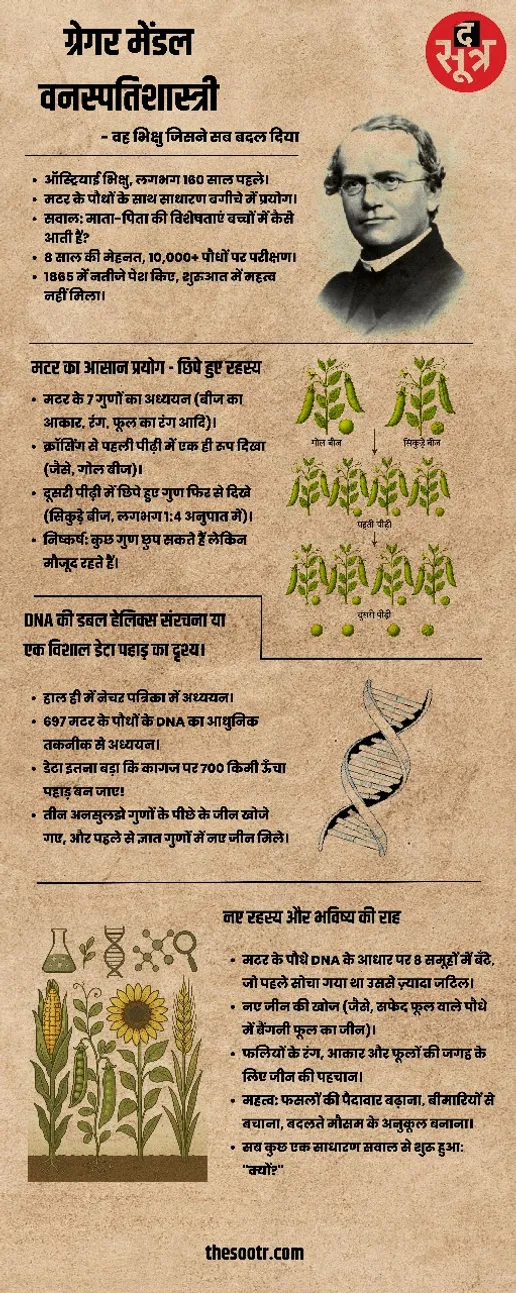 ग्रेगर मेंडल
वनस्पतिशास्त्री
- वह भिक्षु जिसने सब बदल दिया
द
सूत्र
• ऑस्ट्रियाई भिक्षु, लगभग 160 साल पहले।
• मटर के पौधों के साथ साधारण बगीचे में प्रयोग।
• सवाल: माता-पिता की विशेषताएं बच्चों में कैसे
आती हैं?
• 8 साल की मेहनत, 10,000+ पौधों पर परीक्षण।
• 1865 में नतीजे पेश किए, शुरुआत में महत्व
नहीं मिला।
मटर का आसान प्रयोग - छिपे हुए रहस्य
• मटर के 7 गुणों का अध्ययन (बीज का
आकार, रंग, फूल का रंग आदि)।
• क्रॉसिंग से पहली पीढ़ी में एक ही रूप दिखा
(जैसे, गोल बीज)।
• दूसरी पीढ़ी में छिपे हुए गुण फिर से दिखे
(सिकुड़े बीज, लगभग 1:4 अनुपात में)।
• निष्कर्ष: कुछ गुण छुप सकते हैं लेकिन
मौजूद रहते हैं।
गोल बीज
सिकुड़े बीज
पहली पीढ़ी
दूसरी पीढ़ी
DNA की डबल हेलिक्स संरचना या
एक विशाल डेटा पहाड़ का दृश्य।
• हाल ही में नेचर पत्रिका में अध्ययन।
• 697 मटर के पौधों के DNA का आधुनिक
तकनीक से अध्ययन।
• डेटा इतना बड़ा कि कागज पर 700 किमी ऊँचा
पहाड़ बन जाए!
• तीन अनसुलझे गुणों के पीछे के जीन खोजे
गए, और पहले से ज्ञात गुणों में नए जीन मिले।
नए रहस्य और भविष्य की राह
• मटर के पौधे DNA के आधार पर 8 समूहों में बँटे,
जो पहले सोचा गया था उससे ज़्यादा जटिल।
• नए जीन की खोज (जैसे, सफेद फूल वाले पौधे
में बैंगनी फूल का जीन)।
• फलियों के रंग, आकार और फूलों की जगह के
लिए जीन की पहचान।
• महत्व: फसलों की पैदावार बढ़ाना, बीमारियों से
बचाना, बदलते मौसम के अनुकूल बनाना।
• सब कुछ एक साधारण सवाल से शुरू हुआ:
"क्यों?"
thesootr.com